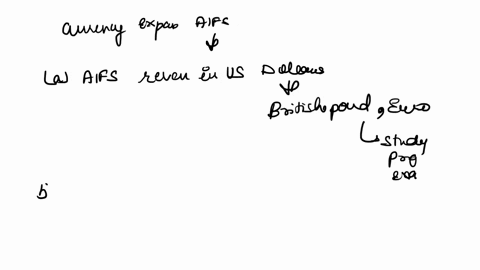 currency expos AIFS
(a) AIFS reven in US Dollars
British pond, Euro
study
Prog
b